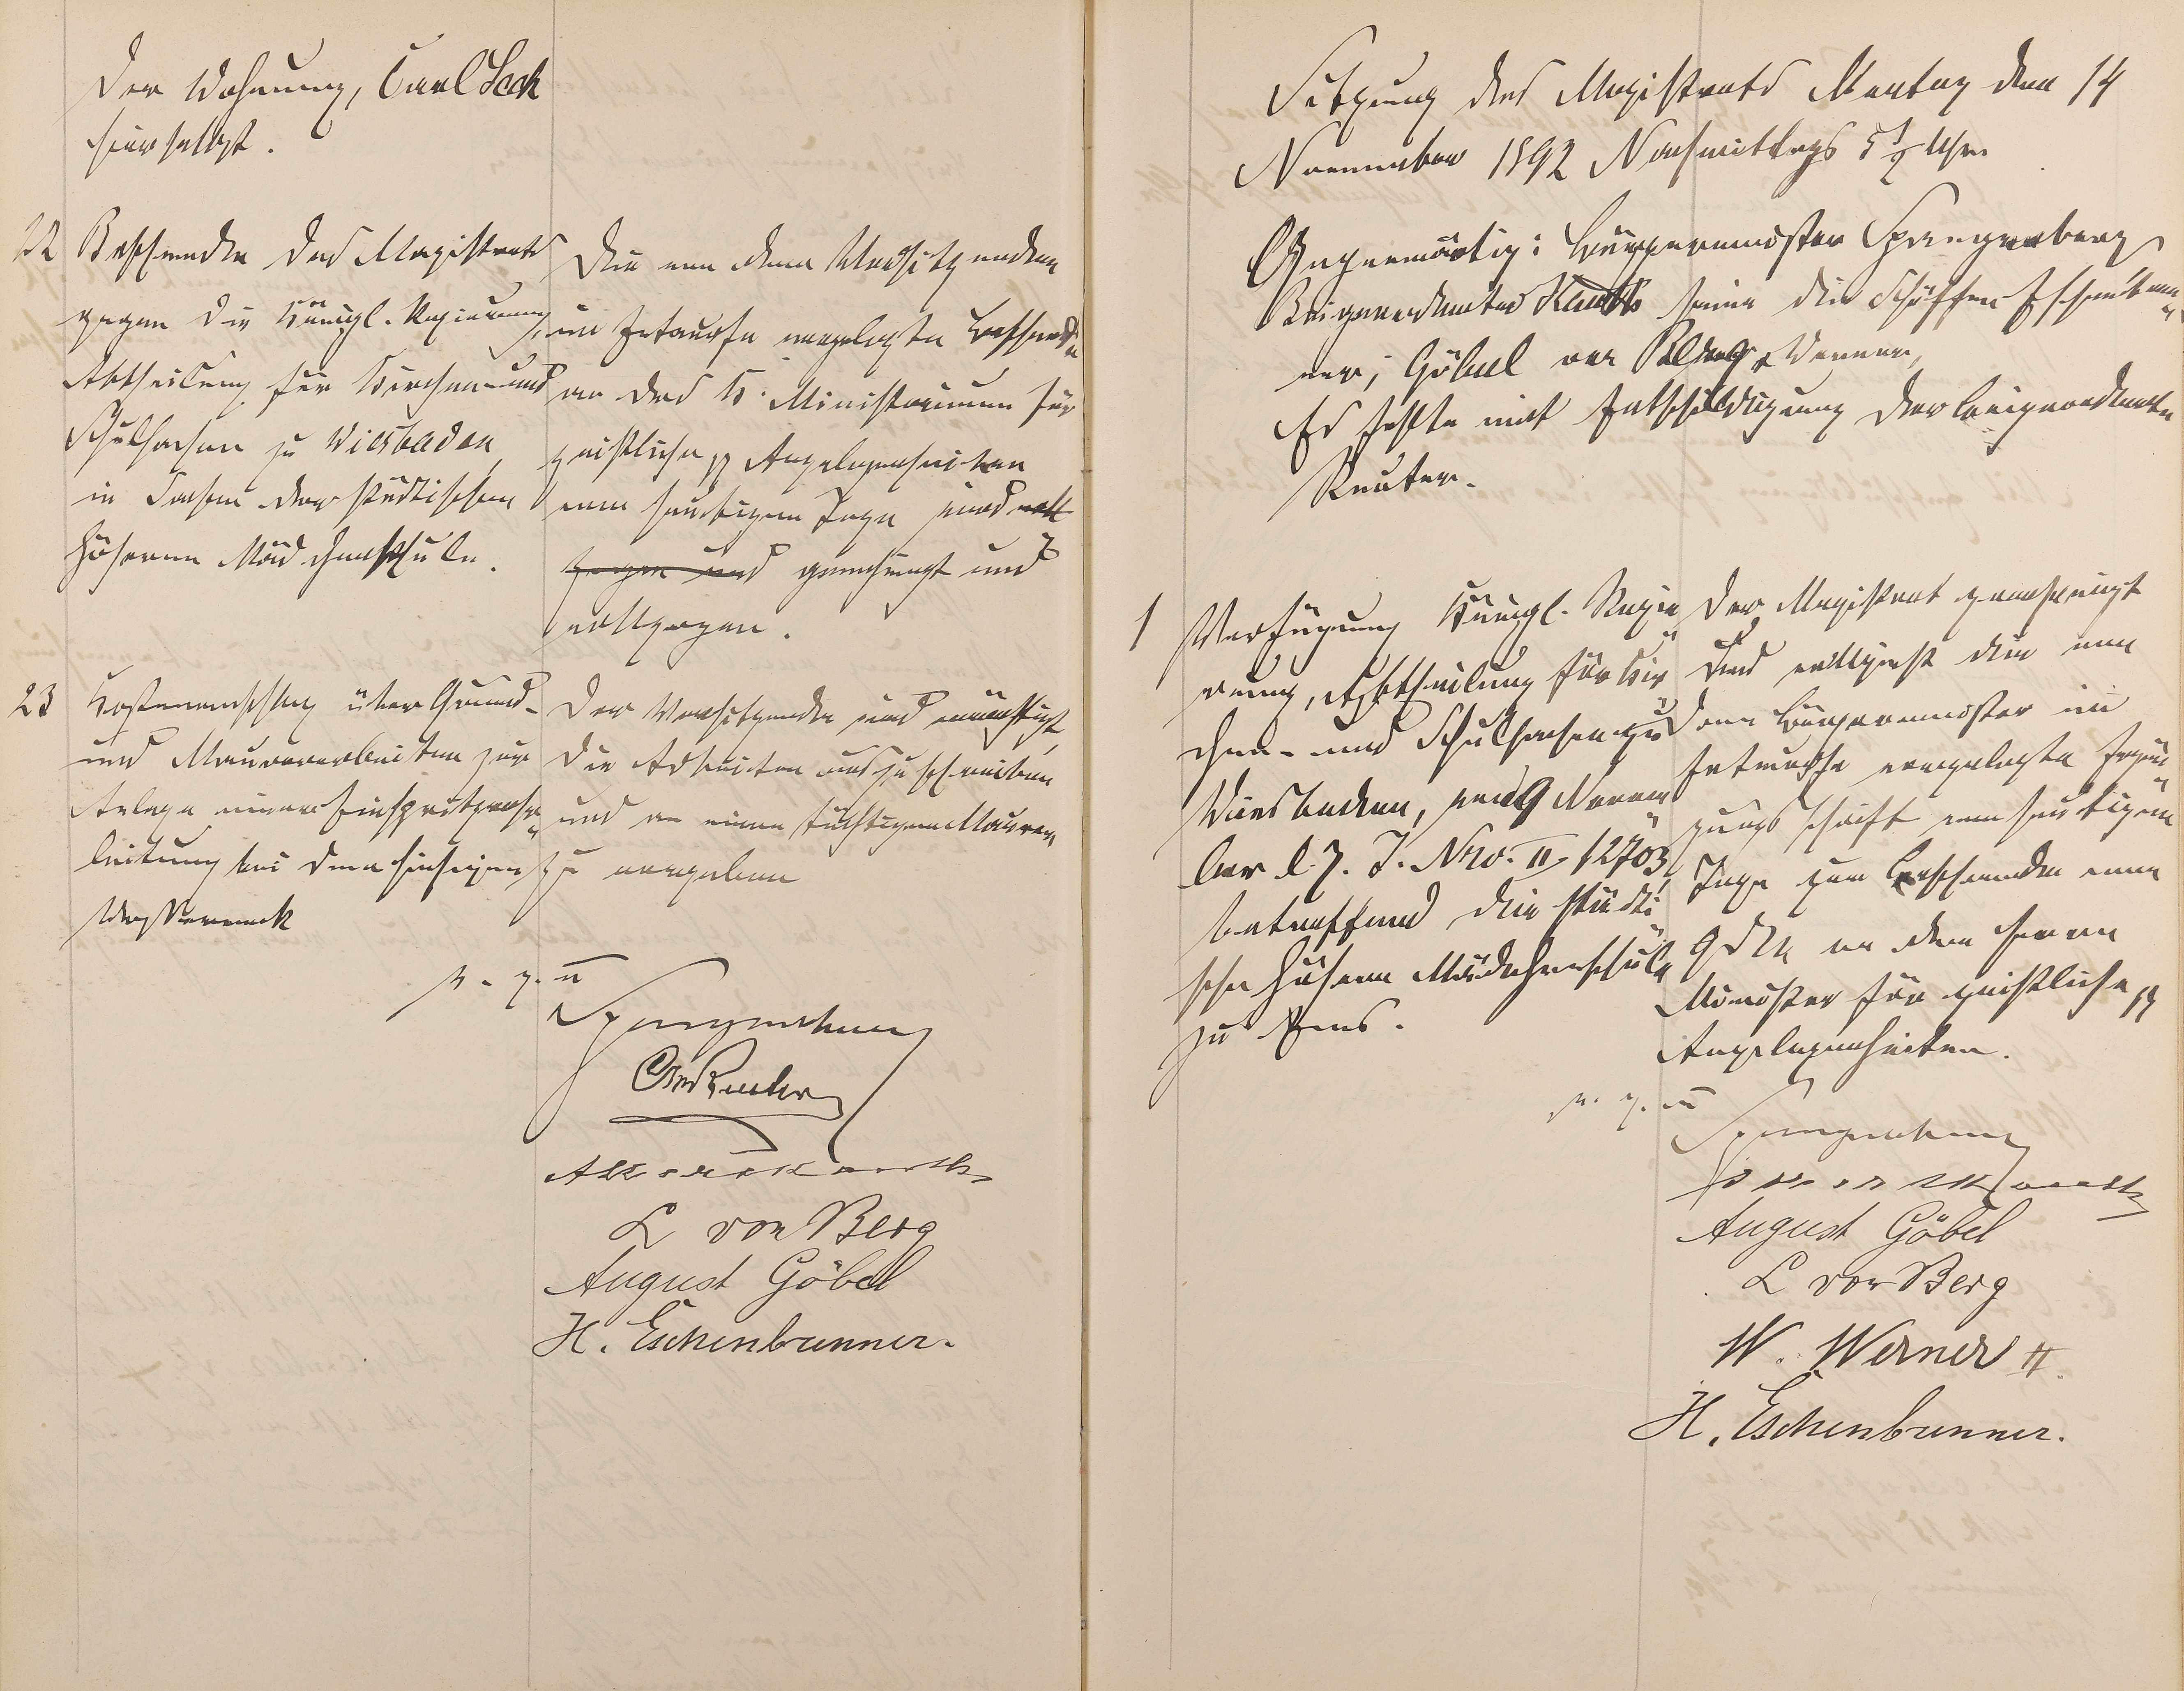 der Wohnung, Carl Lock
hierselbst.
22 Beschwerde des Magistrats
gegen die Königl. Regierung,
Abtheilung für Kirchen- und
Schulsachen zu Wiesbaden
in Sachen der städtischen
höheren Mädchenschule.
Die von dem Vorsitzenden
im Entwurfe vorgelegte Beschwerde
an das K. Ministerium für
geistliche pp Angelegenheiten
vom heutigen Tage wird voll
zogen und genehmigt und
vollzogen.
23 Kostenanschlag über Grund-
und Maurerarbeiten zur
Anlage einer
leitung bei dem hiesigen
Wasserwerk
Der Vorsitzende wird ermächtigt,
die Arbeiten auszuschreiben
und an einen tüchtigen Maurer
zu vergeben
v. g. u
Spangenberg
L von Berg
August Göbel
H. Eschenbrenner.
Sitzung des Magistrats Montag den 14
November 1892 Nachmittags 5 1/2 Uhr
Gegenwärtig: Bürgermeister Spangenberg
Beigeordneter Kauth sowie die Schöffen Eschenbren
ner, Göbel von Berg, Werner,
Es fehlte mit Entschuldigung der Beigeordnete
Reuter.
1 Verfügung Königl. Regie
rung, Abtheilung für Kir
chen- und Schulsachen zu
Wiesbaden, vom 9 Novem
ber d. J. J. Nro. II 12703
betreffend die städti
sche höhere Mädchenschule
zu Ems.
Der Magistrat genehmigt
und vollzieht die von
dem Bürgermeister im
Entwurfe vorgelegte Ergän
zungsschrift vom heutigen
Tage zur Beschwerde vom
9 d Mts an den Herrn
Minister für geistliche pp
Angelegenheiten.
v. g. u
Spangenberg
August Göbel
L von Berg
W. Werner II.
H. Eschenbrenner.